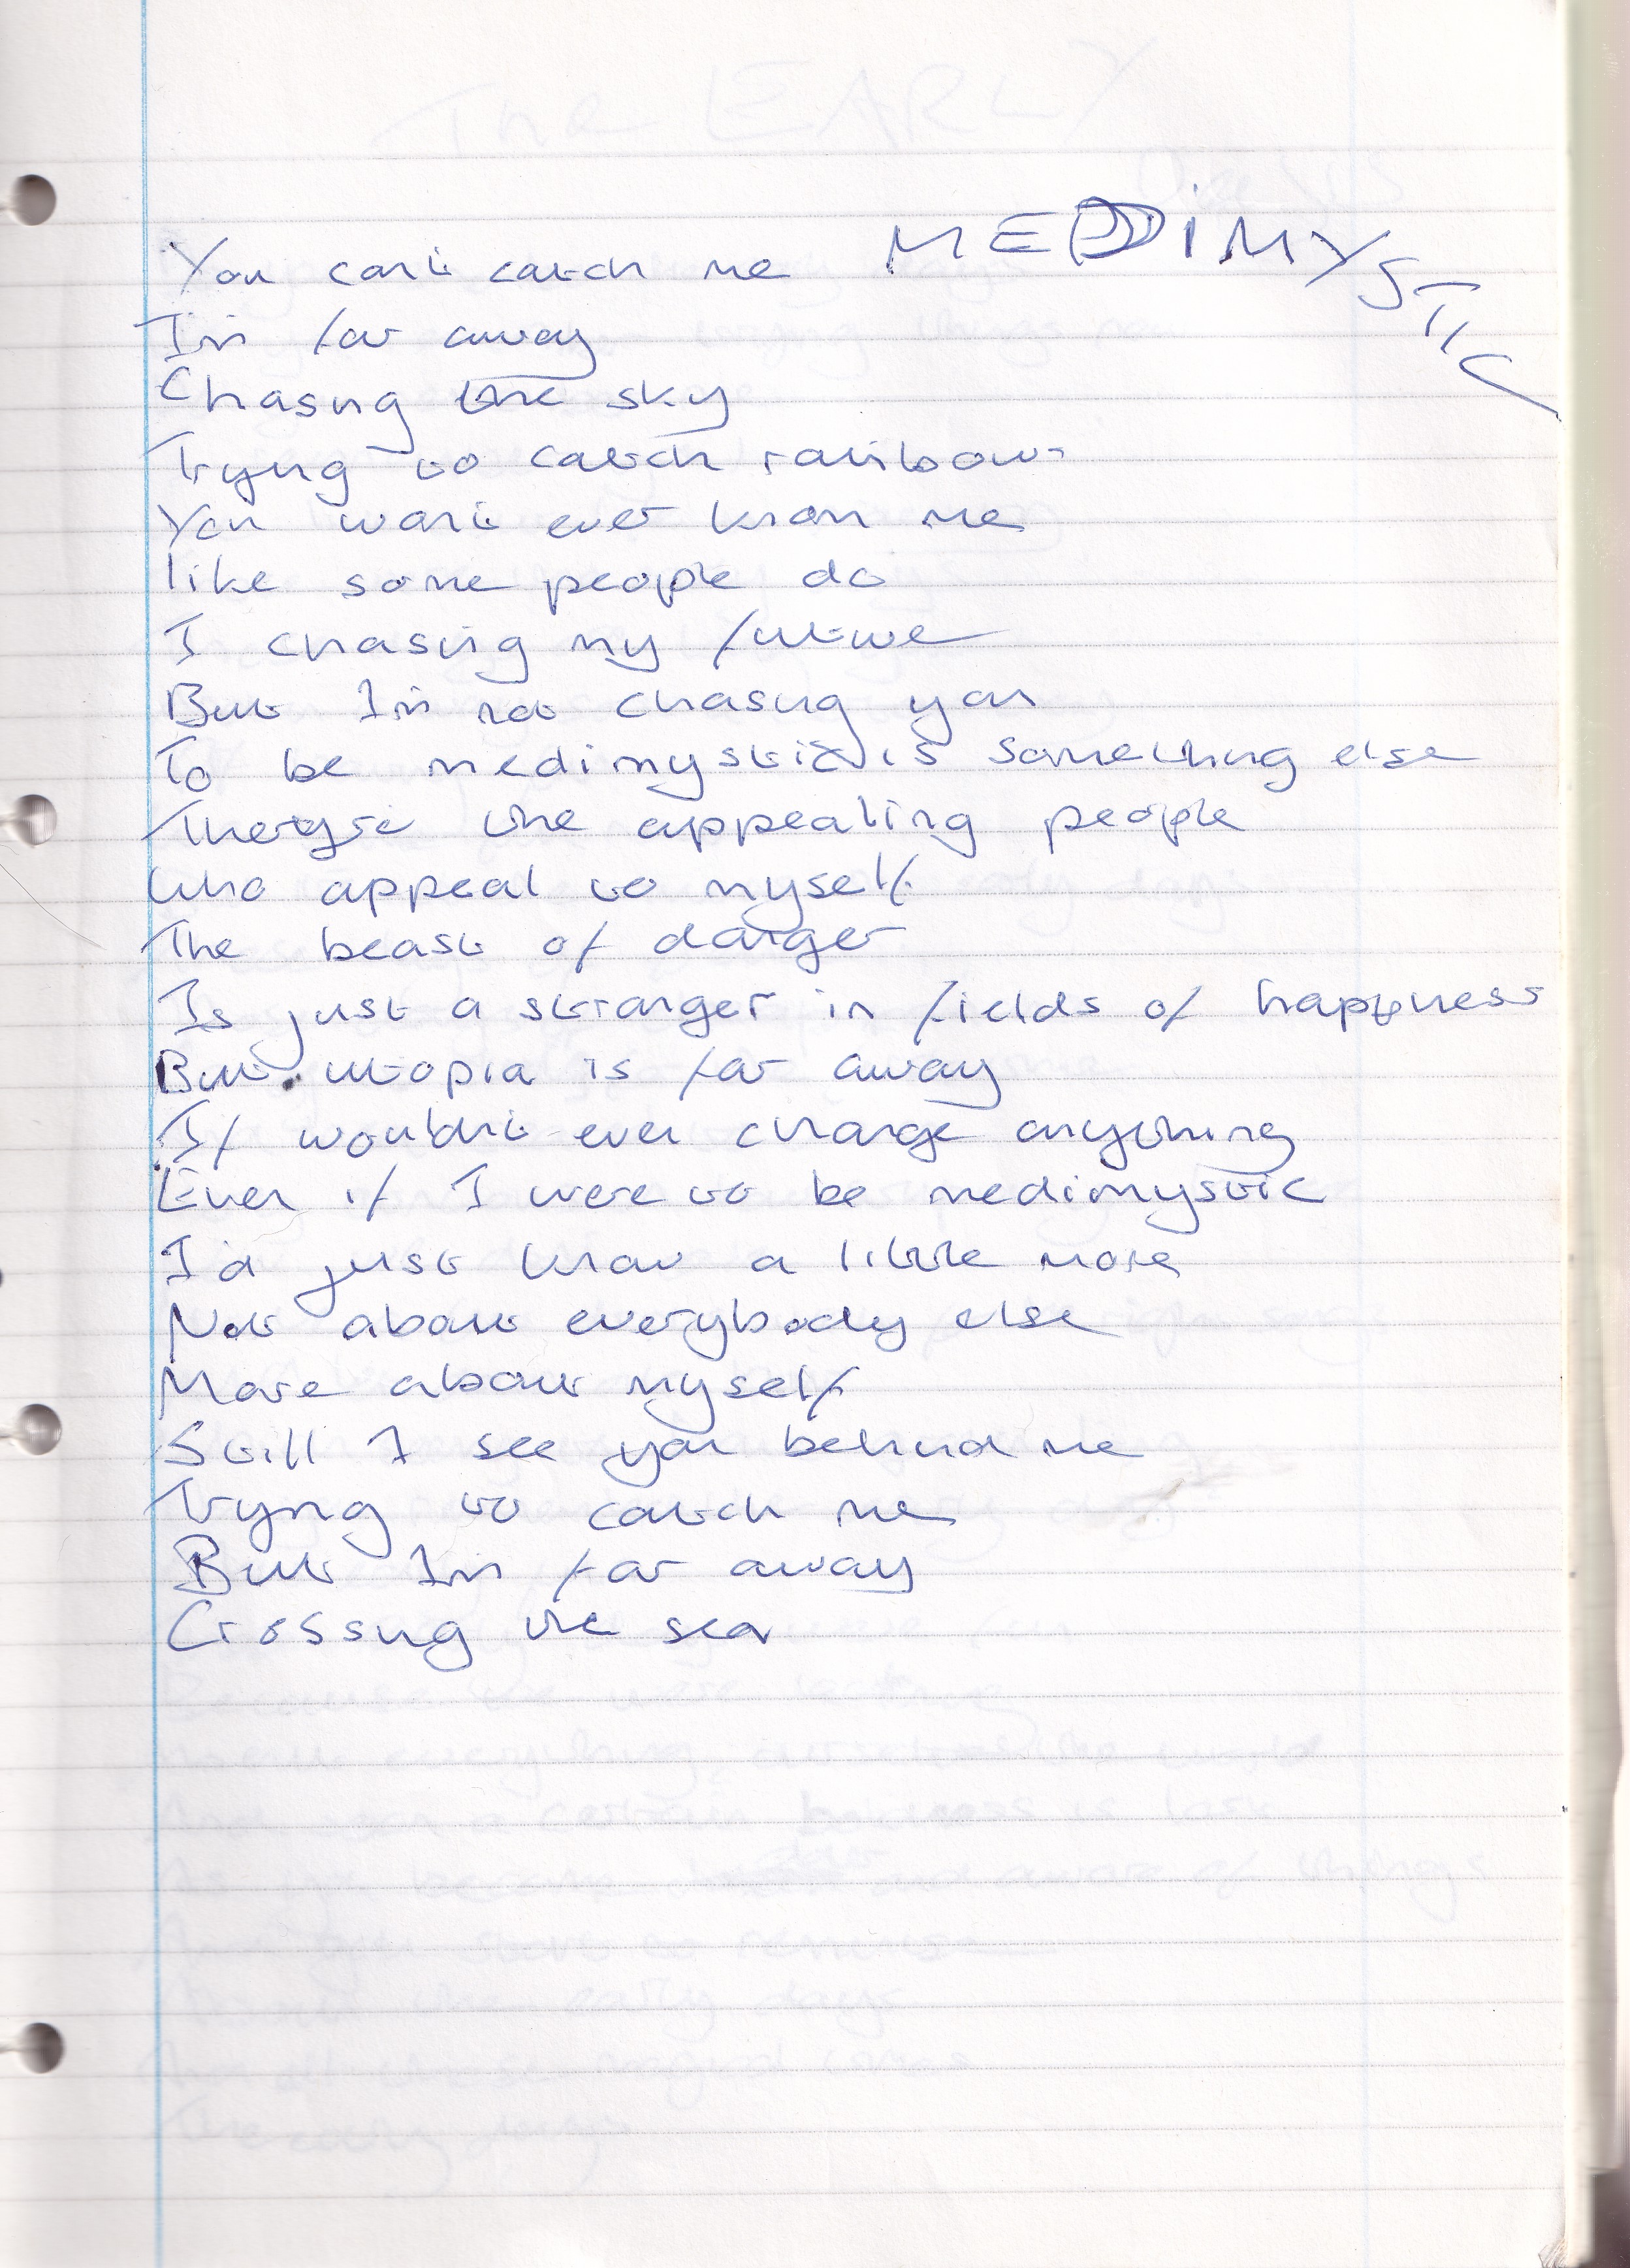 MEDDIMYSTIC
You can't catch me
I'm far away
Chasing the sky
Trying to catch rainbows
You won't ever know me
like some people do
I chasing my future
But I'm not chasing you
To be medimystic is something else
There're the appealing people
Who appeal to myself
The beast of danger
Is just a stranger in fields of happyness
But utopia is far away
If wouldn't ever change anything
Even if I were to be medimystic
I'd just know a little more
Not about everybody else
More about myself
Still I see you behind me
Trying to catch me
But I'm far away
Crossing the sea